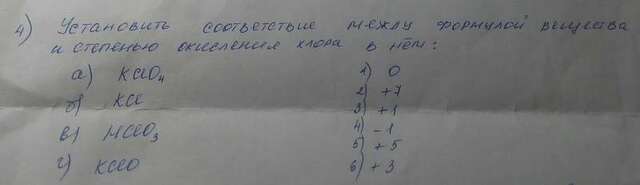 4) Установить соответствие между формулой вещества
и степенью окисления хлора в нём:
а) KClO₄ 1) 0
б) KCl 2) +7
в) HClO₃ 3) +1
4) -1
г) KClO 5) +5
6) +3